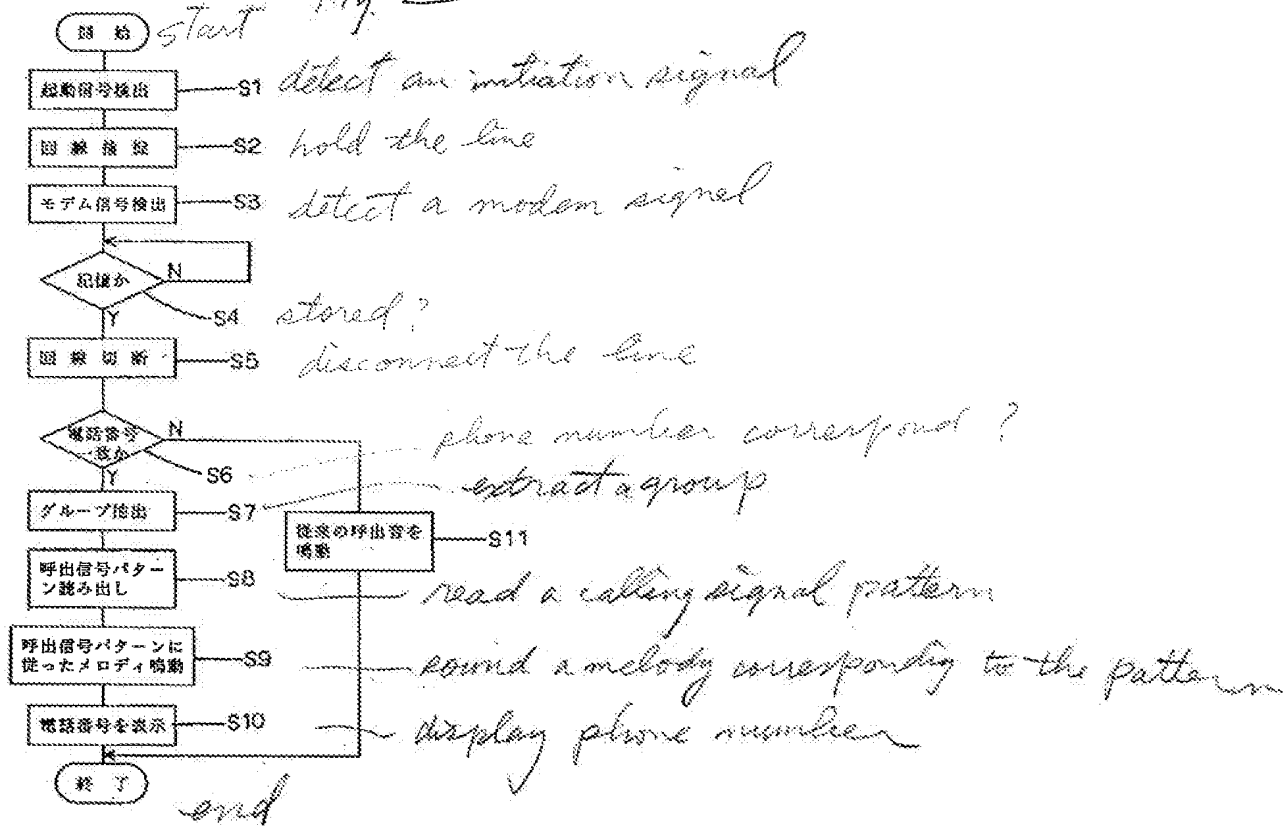 Fig.
開 始 start
起動信号検出 S1 detect an initiation signal
回 線 接 続 S2 hold the line
モデム信号検出 S3 detect a modem signal
記憶か N
Y S4 stored?
回 線 切 断 S5 disconnect the line
電話番号 N phone number correspond?
一致か S6
Y
グループ抽出 S7 extract a group
従来の呼出音を
鳴動 S11
呼出信号パター
ン読み出し S8 read a calling signal pattern
呼出信号パターンに
従ったメロディ鳴動 S9 sound a melody correspondig to the pattern
電話番号を表示 S10 display phone number
終 了 end